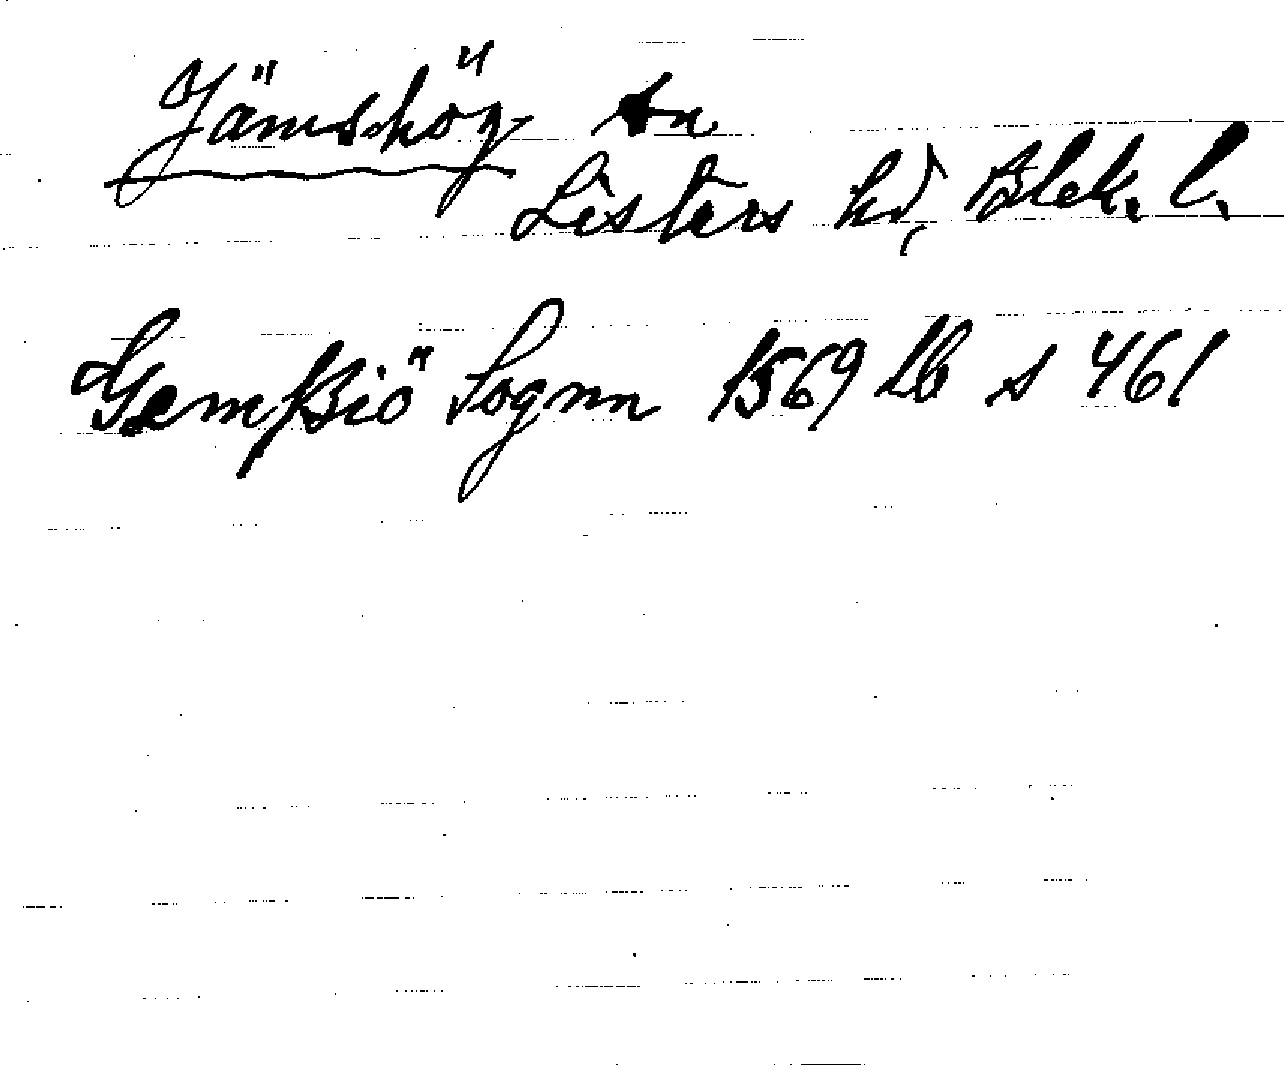 Jämshög sn
Listers hd, Blek. l.
Gemßiö Sognn 1569 Lb s 461